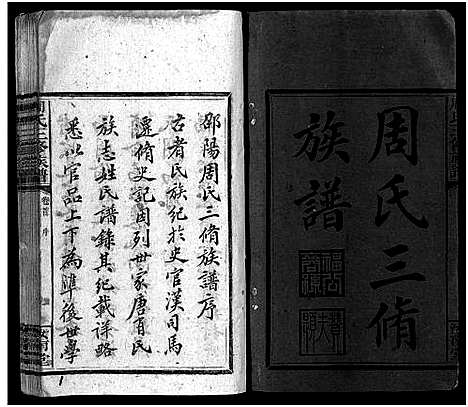 周氏三脩
族譜
邵陽周氏三脩族譜序
古者氏族紀於史官漢司馬
遷脩史記因列世家唐有氏
族志姓氏譜錄其紀載詳略
悉以官品上下為準後世學
卷首
序
1